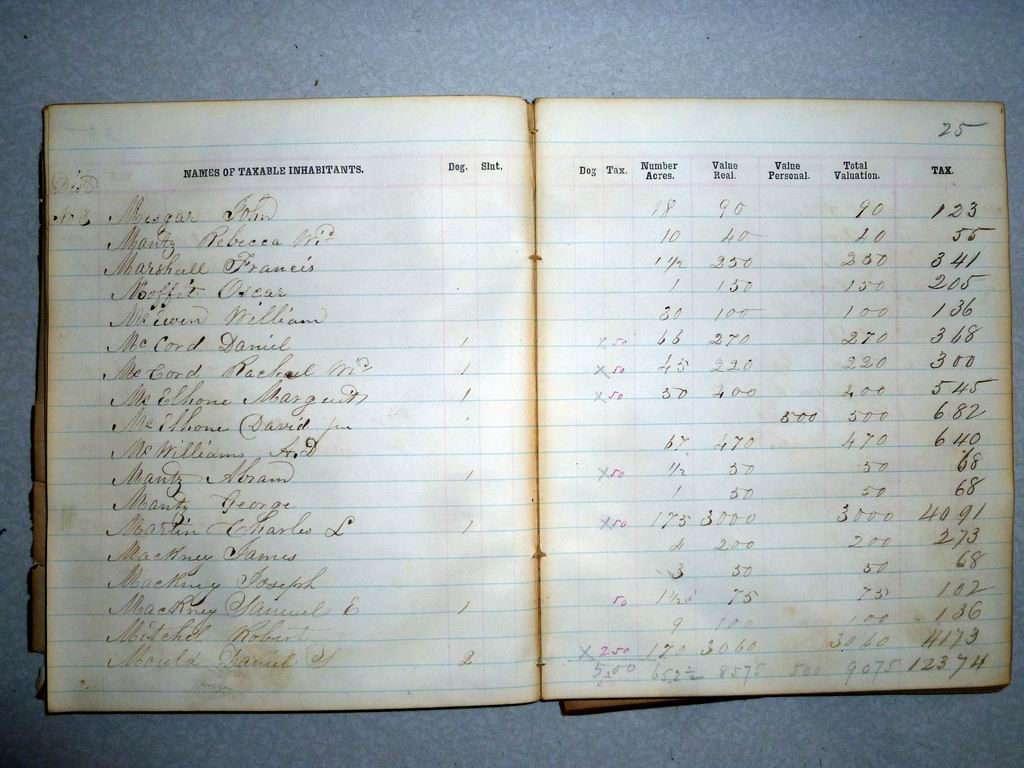 25
NAMES OF TAXABLE INHABITANTS. Dog. Slut. Dog Tax. Number Acres. Value Real. Value Personal. Total Valuation. TAX.
Dist
No 3 Misgar John 18 90 90 123
Mantz Rebecca Wid 10 40 40 55
Marshall Francis 1 1/2 250 250 341
Moffit Oscar 1 150 150 205
McEwen William 30 100 100 136
McCord Daniel 1 x 50 66 270 270 368
McCord Rachael Wid 1 x 50 45 220 220 300
McElhone Margueth 1 x 50 50 400 400 545
McElhone David jun 500 500 682
McWilliams A.D 67 470 470 640
Mantz Abram 1 x 50 1/2 50 50 68
Mantz George 1 50 50 68
Martin Charles L 1 x 50 175 3000 3000 4091
Mackney James 4 200 200 273
Mackney Joseph 3 50 50 68
Mackney Samuel E 1 50 1 1/2 75 75 102
Mitchel Robert 9 100 100 136
Mould Daniel S 2 x 250 170 3060 3060 4173
5,00 652 1/2 8575 500 9075 12374